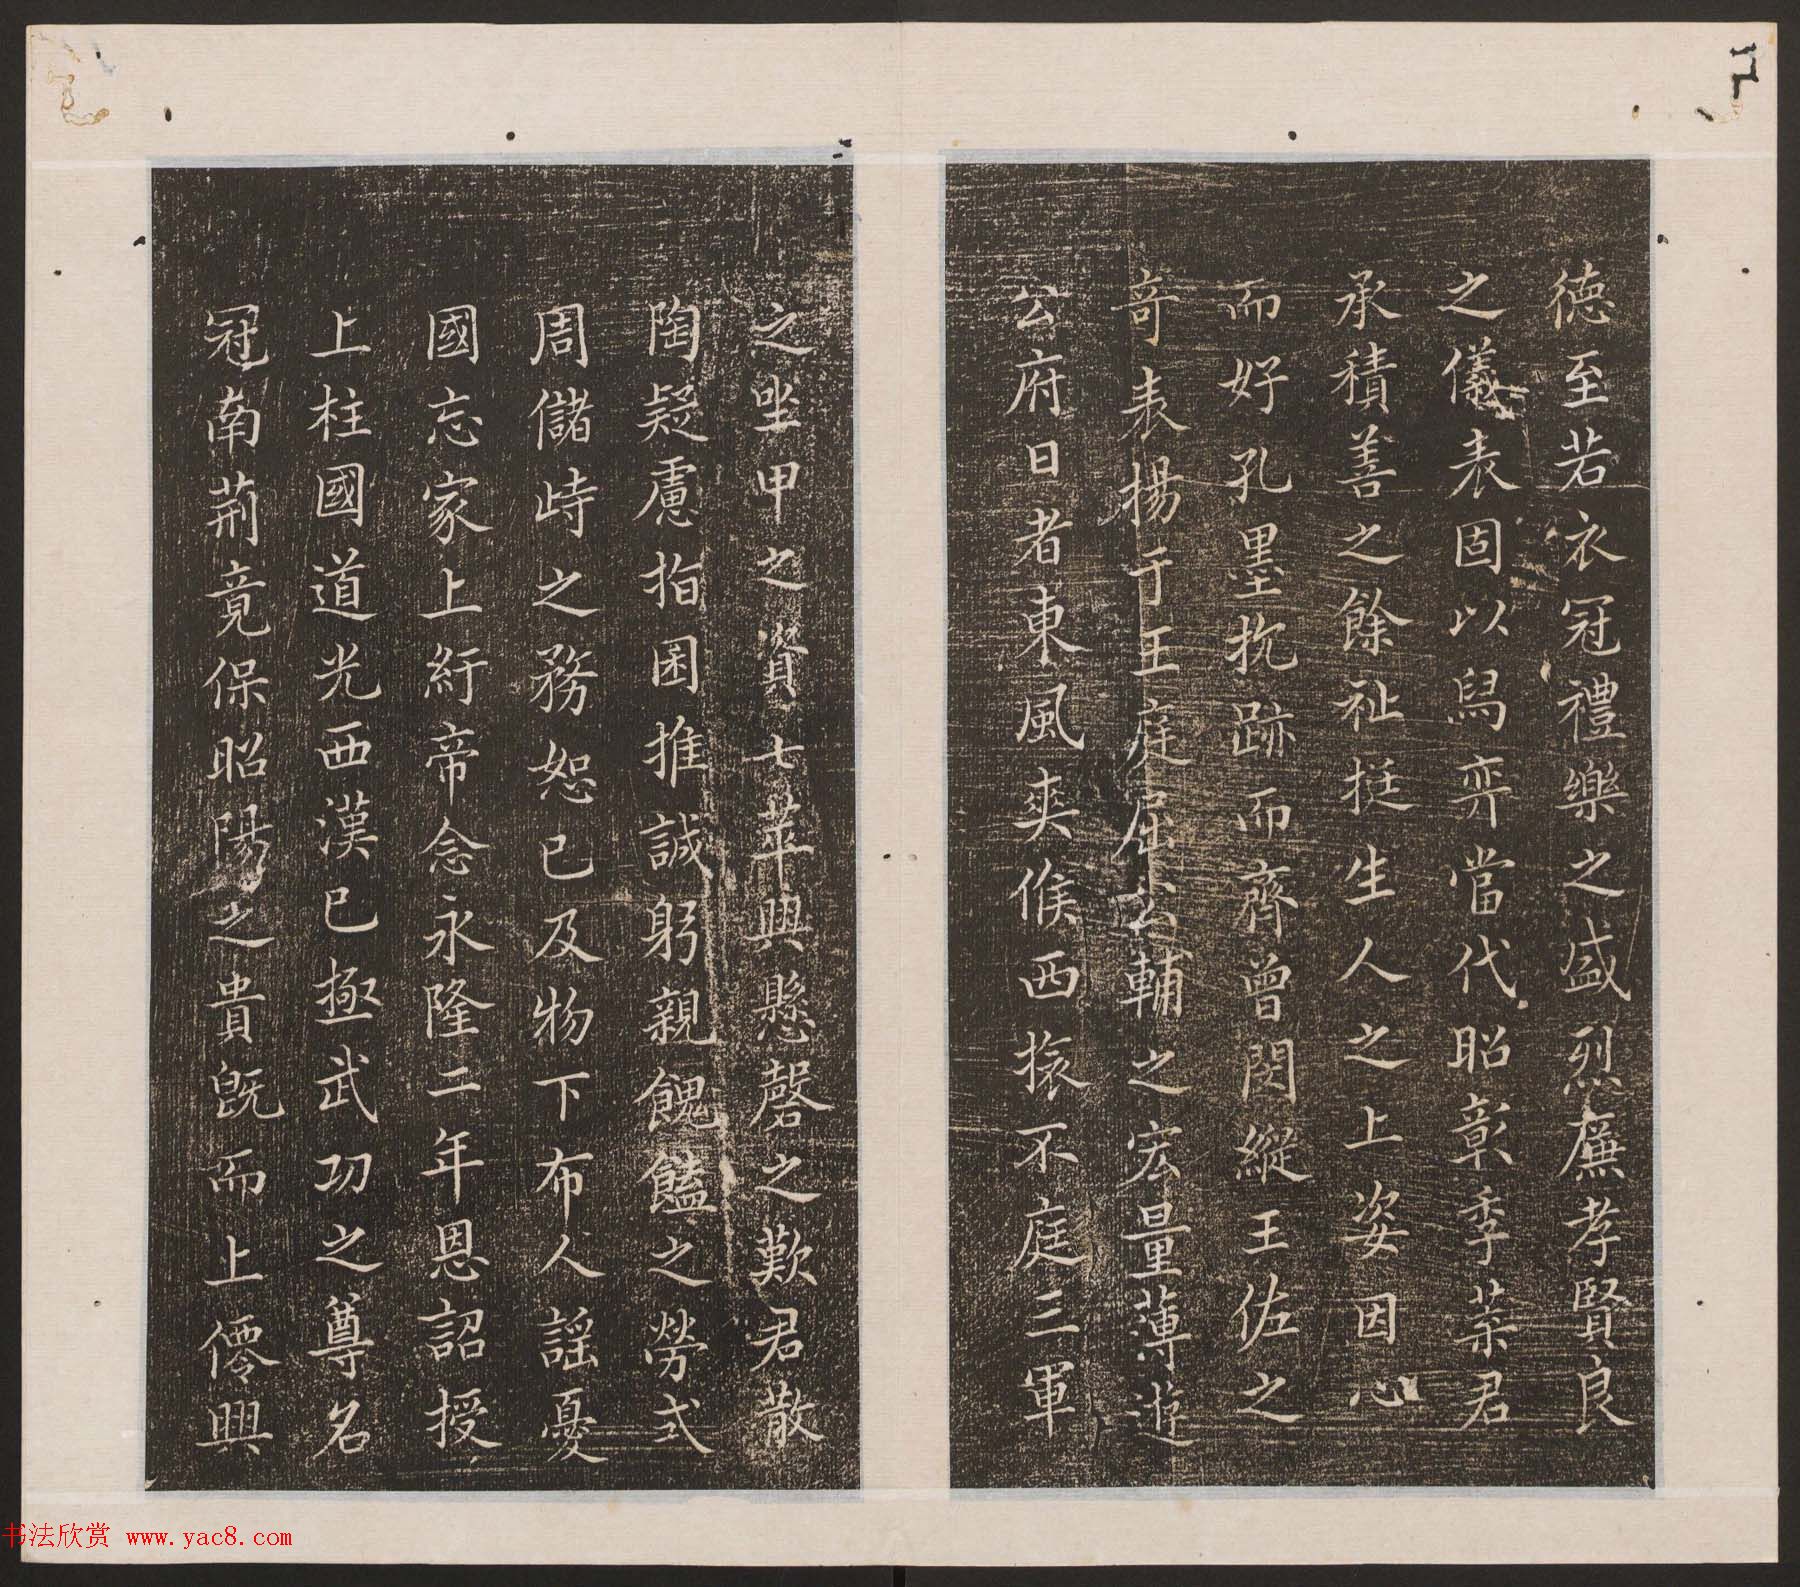 德至若衣冠禮樂之盛烈廉孝賢良
之儀表固以舄弈當代昭彰季葉君
承積善之餘祉挺生人之上姿因心
而好孔墨抗跡而齊曾閔縱王佐之
奇表揚于王庭屈公輔之宏量薄遊
公府日者東風爽候西振不庭三軍
之坐甲之資七萃興懸磬之歎君散
陶疑慮指囷推誠躬親餽饁之勞式
周儲峙之務恕已及物下布人謡憂
國忘家上紆帝念永隆二年恩詔授
上柱國道光西漢已極武功之尊名
冠南荊竟保昭陽之貴既而上僊興
书法欣赏 www.yac8.com